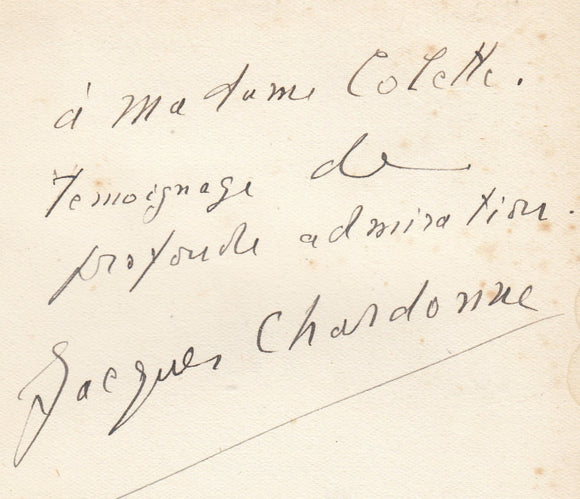 à Madame Colette.
témoignage de
profonde admiration.
Jacques Chardonne